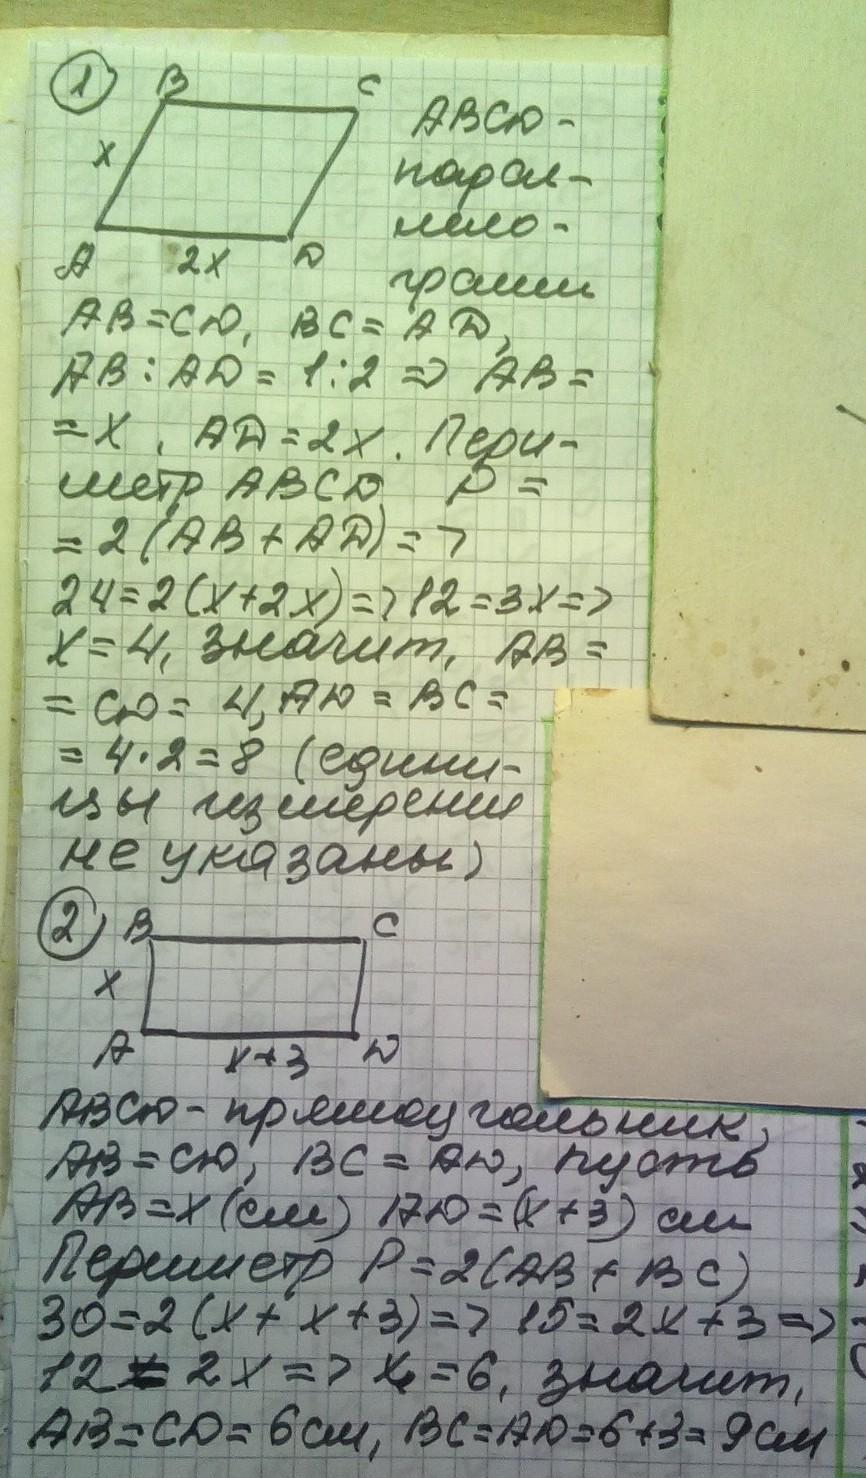 1 B C
x
ABCD -
парал-
лело-
грамм
A 2x D
AB = CD, BC = AD,
AB : AD = 1:2 => AB =
= x, AD = 2x. Пери-
метр ABCD P =
= 2(AB + AD) =>
24 = 2(x+2x) => 12 = 3x =>
x = 4, значит, AB =
= CD = 4, AD = BC =
= 4·2 = 8 (едини-
цы измерения
не указаны)
2 B C
x
A x+3 D
ABCD - прямоугольник,
AB = CD, BC = AD, пусть
AB = x (см) AD = (x+3) см
Периметр P = 2(AB + BC)
30 = 2(x + x + 3) => 15 = 2x + 3 =>
12 = 2x => x = 6, значит,
AB = CD = 6 см, BC = AD = 6+3 = 9 см